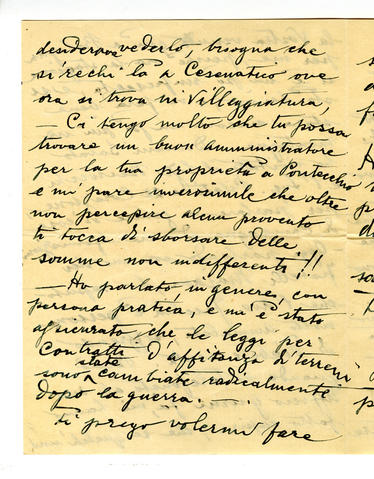 desiderare vederlo, bisogna che
si rechi là a Cesenatico ove
ora si trova in Villeggiatura,
— Ci tengo molto che tu possa
trovare un buon amministratore
per la tua proprietà a Pontecchio
e mi pare inverosimile che oltre
non percepire alcun provento
ti tocca di sborsare delle
somme non indifferenti!!
— Ho parlato in genere, con
persona pratica, e mi è stato
assicurato che le leggi per
Contratti d'affitanza di terreni
sono state cambiate radicalmente
dopo la guerra. —.—
ti prego volermi fare